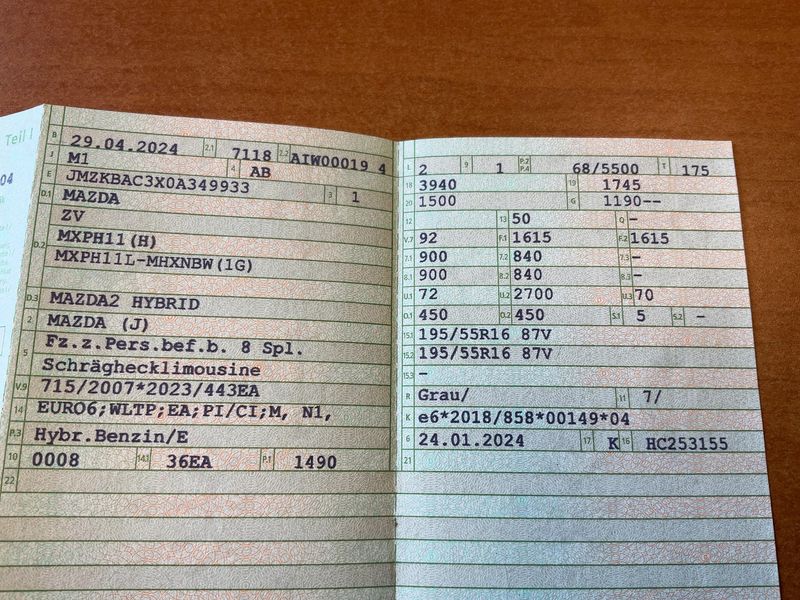 Teil I
04
B 29.04.2024 2.1 7118 2.2 AIW00019 4
J M1 4 AB
E JMZKBAC3X0A349933 3 1
D.1 MAZDA
ZV
D.2 MXPH11(H)
MXPH11L-MHXNBW(1G)
D.3 MAZDA2 HYBRID
2 MAZDA (J)
5 Fz.z.Pers.bef.b. 8 Spl.
Schräghecklimousine
V.9 715/2007*2023/443EA
14 EURO6;WLTP;EA;PI/CI;M, N1,
P.3 Hybr.Benzin/E
10 0008 14.1 36EA P.1 1490
22
L 2 9 1 P.2 P.4 68/5500 T 175
18 3940 19 1745
20 1500 G 1190--
12 13 50 Q -
V.7 92 F.1 1615 F.2 1615
7.1 900 7.2 840 7.3 -
8.1 900 8.2 840 8.3 -
U.1 72 U.2 2700 U.3 70
O.1 450 O.2 450 S.1 5 S.2 -
15.1 195/55R16 87V
15.2 195/55R16 87V
15.3 -
R Grau/ 11 7/
K e6*2018/858*00149*04
6 24.01.2024 17 K 16 HC253155
21